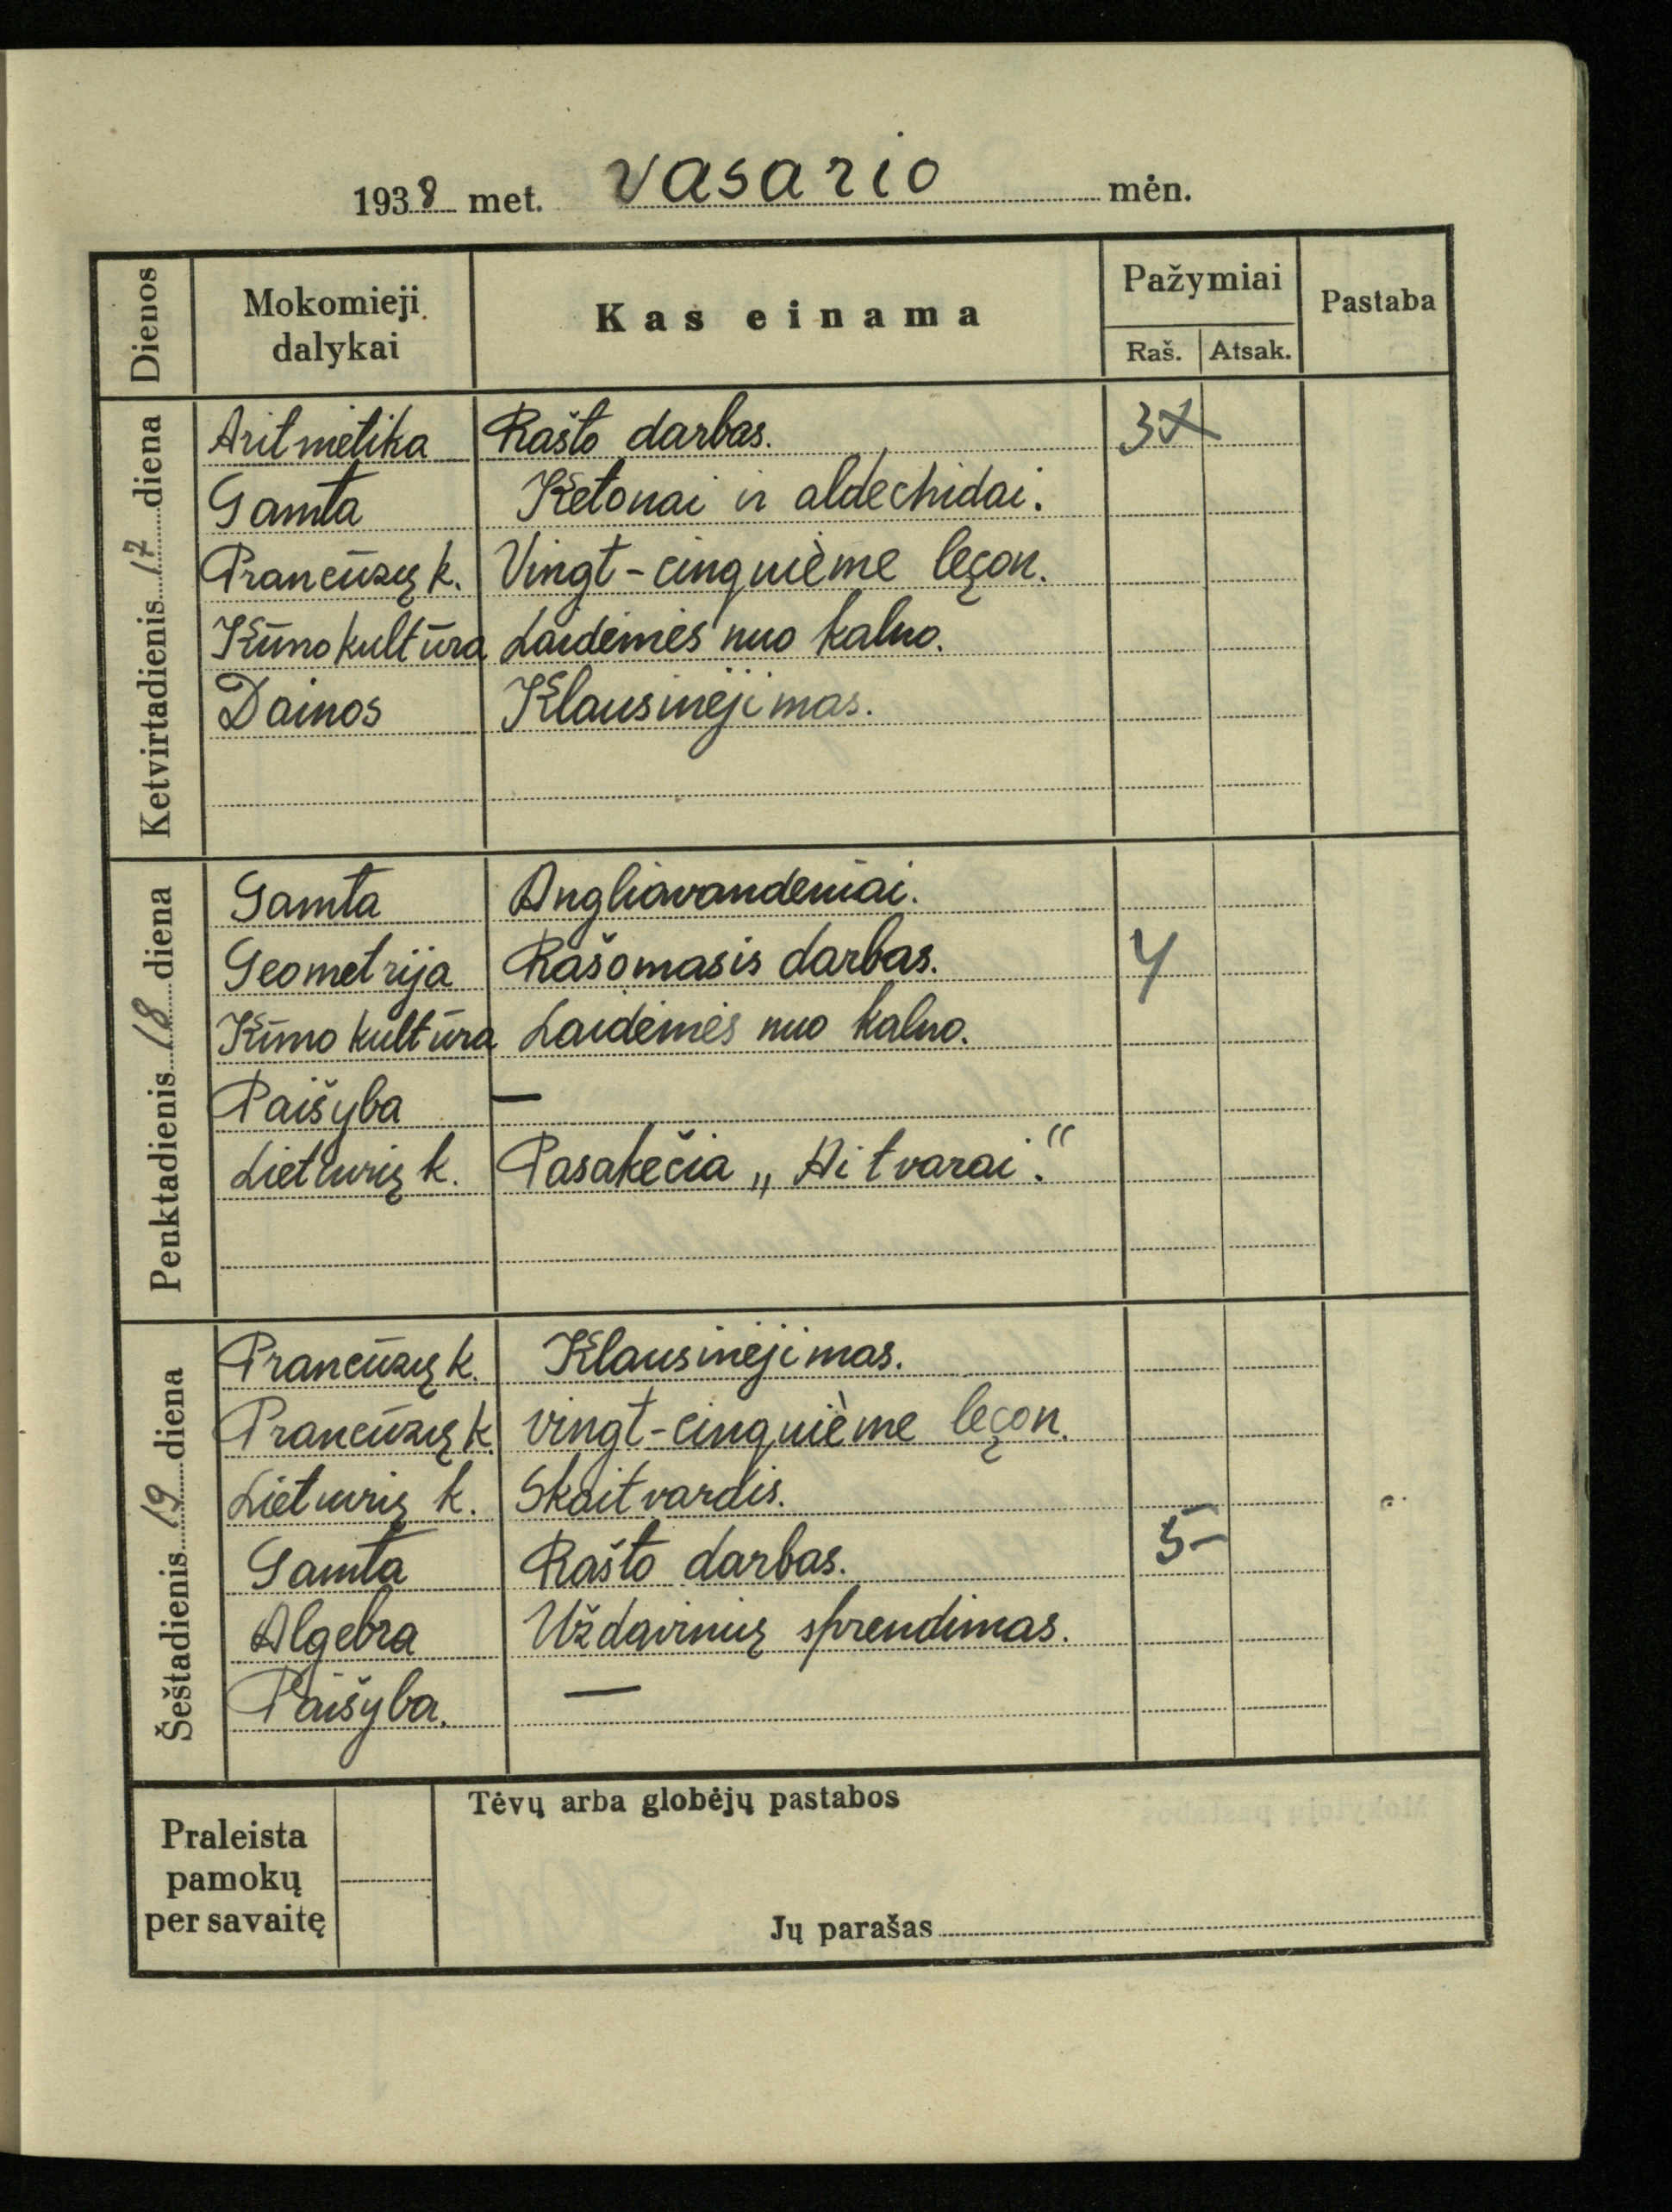 1938 met. vasario mėn.
Dienos Mokomieji dalykai Kas einama Pažymiai Pastaba
Raš. Atsak.
Ketvirtadienis 17 diena
Aritmetika Rašto darbas. 3
Gamta Ketonai ir aldechidai.
Prancūzų k. Vingt-cinquième leçon.
Kūno kultūra Laidėmės nuo kalno.
Dainos Klausinėjimas.
Penktadienis 18 diena
Gamta Angliavandeniai.
Geometrija Rašomasis darbas. 4
Kūno kultūra Laidėmės nuo kalno.
Paišyba —
Lietuvių k. Pasakėčia „Aitvarai".
Šeštadienis 19 diena
Prancūzų k. Klausinėjimas.
Prancūzų k. vingt-cinquième leçon.
Lietuvių k. Skaitvardis.
Gamta Rašto darbas. 5-
Algebra Uždavinių sprendimas.
Paišyba. —
Praleista
pamokų
per savaitę
Tėvų arba globėjų pastabos
Jų parašas